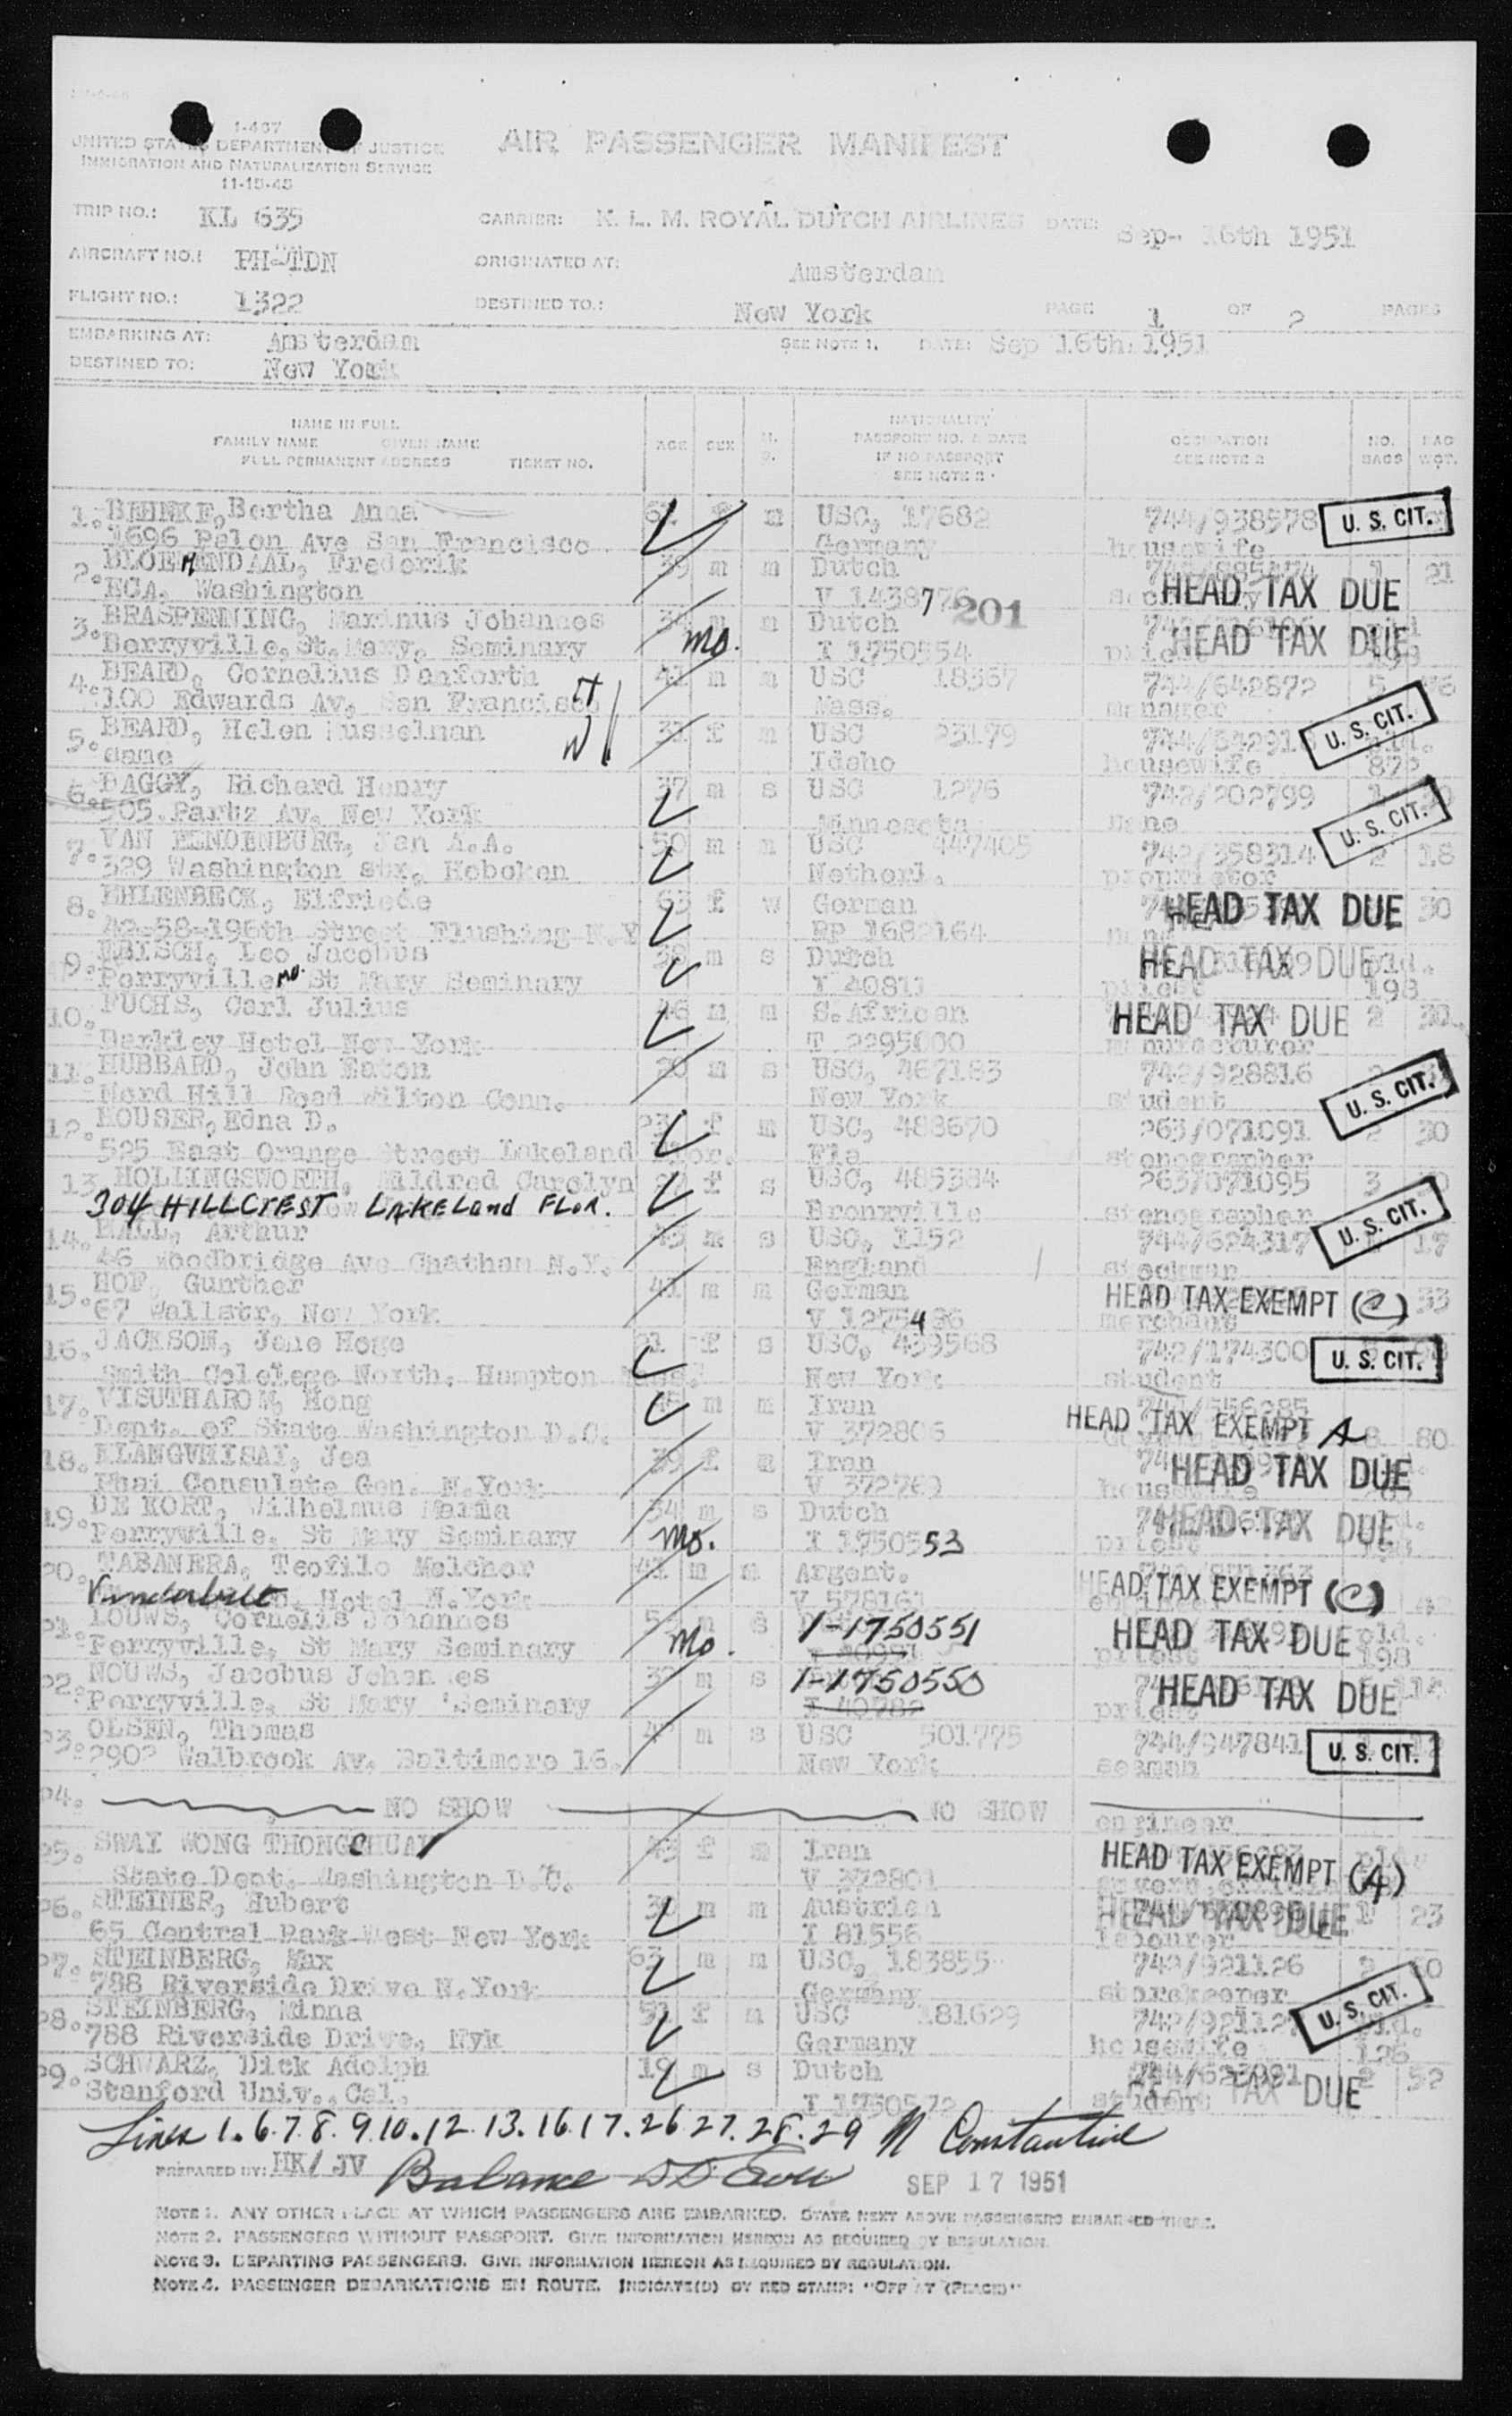 1-467
UNITED STATES DEPARTMENT OF JUSTICE
IMMIGRATION AND NATURALIZATION SERVICE
11-15-45
AIR PASSENGER MANIFEST
TRIP NO.: KL 635 CARRIER: K. L. M. ROYAL DUTCH AIRLINES DATE: Sep- 16th 1951
AIRCRAFT NO.: PH-TDN ORIGINATED AT: Amsterdam
FLIGHT NO.: 1322 DESTINED TO.: New York PAGE 1 OF 2 PAGES
EMBARKING AT: Amsterdam SEE NOTE 1. DATE: Sep 16th. 1951
DESTINED TO: New York
NAME IN FULL
FAMILY NAME GIVEN NAME
FULL PERMANENT ADDRESS TICKET NO.
AGE SEX
NATIONALITY
PASSPORT NO. & DATE
IF NO PASSPORT
SEE NOTE 2
OCCUPATION
SEE NOTE 2
NO. BAGS BAG WGT.
1. BEHNKE, Bertha Anna f m USC, 17682 744/938578 U. S. CIT.
1696 Ave San Francisco Germany housewife
2. BLOEMENDAAL, Frederik 39 m m Dutch 1 21
ECA, Washington V 1438776 7 201 HEAD TAX DUE
3. BRASPENNING, Marinus Johannes m Dutch
Perryville, St. Mary, Seminary Mo. T 1750554 priest HEAD TAX DUE
4. BEARD, Cornelius Danforth 41 m m USC 18367 744/642872 5
100 Edwards Av, San Francisco Mass. manager
5. BEARD, Helen Musselman 31 f m USC 23179 U. S. CIT.
same Idaho housewife 872
6. BAGGY, Richard Henry 37 m s USC 1276 742/202799
505 Av. New York Minnesota none U. S. CIT.
7. VAN EENDENBURG, Jan A.A. 50 m m USC 447405 742/358314 2 18
329 Washington str, Hoboken Netherl. proprietor
8. EHLENBECK, Elfriede 63 f w German HEAD TAX DUE 30
42-58-196th Street Flushing N.Y RP 1682164 none
9. EBISCH, Leo Jacobus m s Dutch HEAD TAX DUE
Perryville Mo. St Mary Seminary T 40811 priest 198
10. FUCHS, Carl Julius 46 m m S.African HEAD TAX DUE 2 30
Barkley Hotel New York T 2295000 manufacturer
11. HUBBARD, John Eaton 20 m s USC, 467183 742/928816
Nord Hill Road Wilton Conn. New York student U. S. CIT.
12. HOUSER, Edna D. 23 f m USC, 488670 263/071091 2 30
525 East Orange Street Lakeland Flor. Fla stenographer
13. HOLLINGSWORTH, Mildred Carolyn 27 f s USC, 485384 263/071095 3
304 HILLCREST LAKELAND FLOR. Bronxville stenographer
14. HALL, Arthur 43 m s USC, 1152 744/624317 U. S. CIT. 17
46 Woodbridge Ave Chatham N.Y. England
15. HOF, Gunther 41 m m German HEAD TAX EXEMPT (C) 33
67 Wallstr, New York V 1275486 4 merchant
16. JACKSON, Jane Hoge 21 f s USC, 439568 742/174300 U. S. CIT.
Smith Colelege North. Hampton Mass. New York student
17. VISUTHAROM, Hong m m Iran
Dept. of State Washington D.C. V 372806 HEAD TAX EXEMPT A 8 80
18. ELANGVHISAI, Jea 39 f m Iran HEAD TAX DUE
Thai Consulate Gen. N.York V 372769 housewife
19. DE KORT, Wilhelmus Maria 34 m s Dutch HEAD TAX DUE
Perryville, St Mary Seminary Mo. T 1750553 priest 198
20. TABANERA, Teofilo Melchor 41 m m Argent. HEAD TAX EXEMPT (C)
Vanderbilt Hotel N.York
21. LOUWS, Cornelis Johannes m s 1-1750551 HEAD TAX DUE
Perryville, St Mary Seminary Mo. priest 198
22. NOUWS, Jacobus Johannes m s 1-1750550 HEAD TAX DUE
Perryville, St Mary Seminary T 40782 priest
23. OLSEN, Thomas m s USC 501775 744/947841 U. S. CIT.
2902 Walbrook Av. Baltimore 16. New York seaman
24. NO SHOW NO SHOW engineer
25. SWAI WONG THONGCHUAY 43 f m Iran HEAD TAX EXEMPT (A)
State Dept. Washington D.C. V 372801
26. STEINER, Hubert m m Austrian HEAD TAX DUE 1 23
65 Central Park West New York T 81556 labourer
27. STEINBERG, Max 63 m m USC, 183855 742/921126
788 Riverside Drive N.York Germany storekeeper
28. STEINBERG, Minna 51 f m USC 181629 U. S. CIT.
788 Riverside Drive, Nyk Germany housewife 126
29. SCHWARZ, Dick Adolph 19 m s Dutch 744/623091 2 52
Stanford Univ., Cal. T 1750572 student TAX DUE
Lines 1.6.7.8.9.10.12.13.16.17.26.27.28.29 N Constantine
PREPARED BY: HK/ JV Balance SEP 17 1951
NOTE 1. ANY OTHER PLACE AT WHICH PASSENGERS ARE EMBARKED. STATE NEXT ABOVE PASSENGERS EMBARKED THERE.
NOTE 2. PASSENGERS WITHOUT PASSPORT. GIVE INFORMATION HEREON AS REQUIRED BY REGULATION.
NOTE 3. DEPARTING PASSENGERS. GIVE INFORMATION HEREON AS REQUIRED BY REGULATION.
NOTE 4. PASSENGER DEBARKATIONS EN ROUTE. INDICATE(D) BY RED STAMP: "OFF AT (PLACE)"